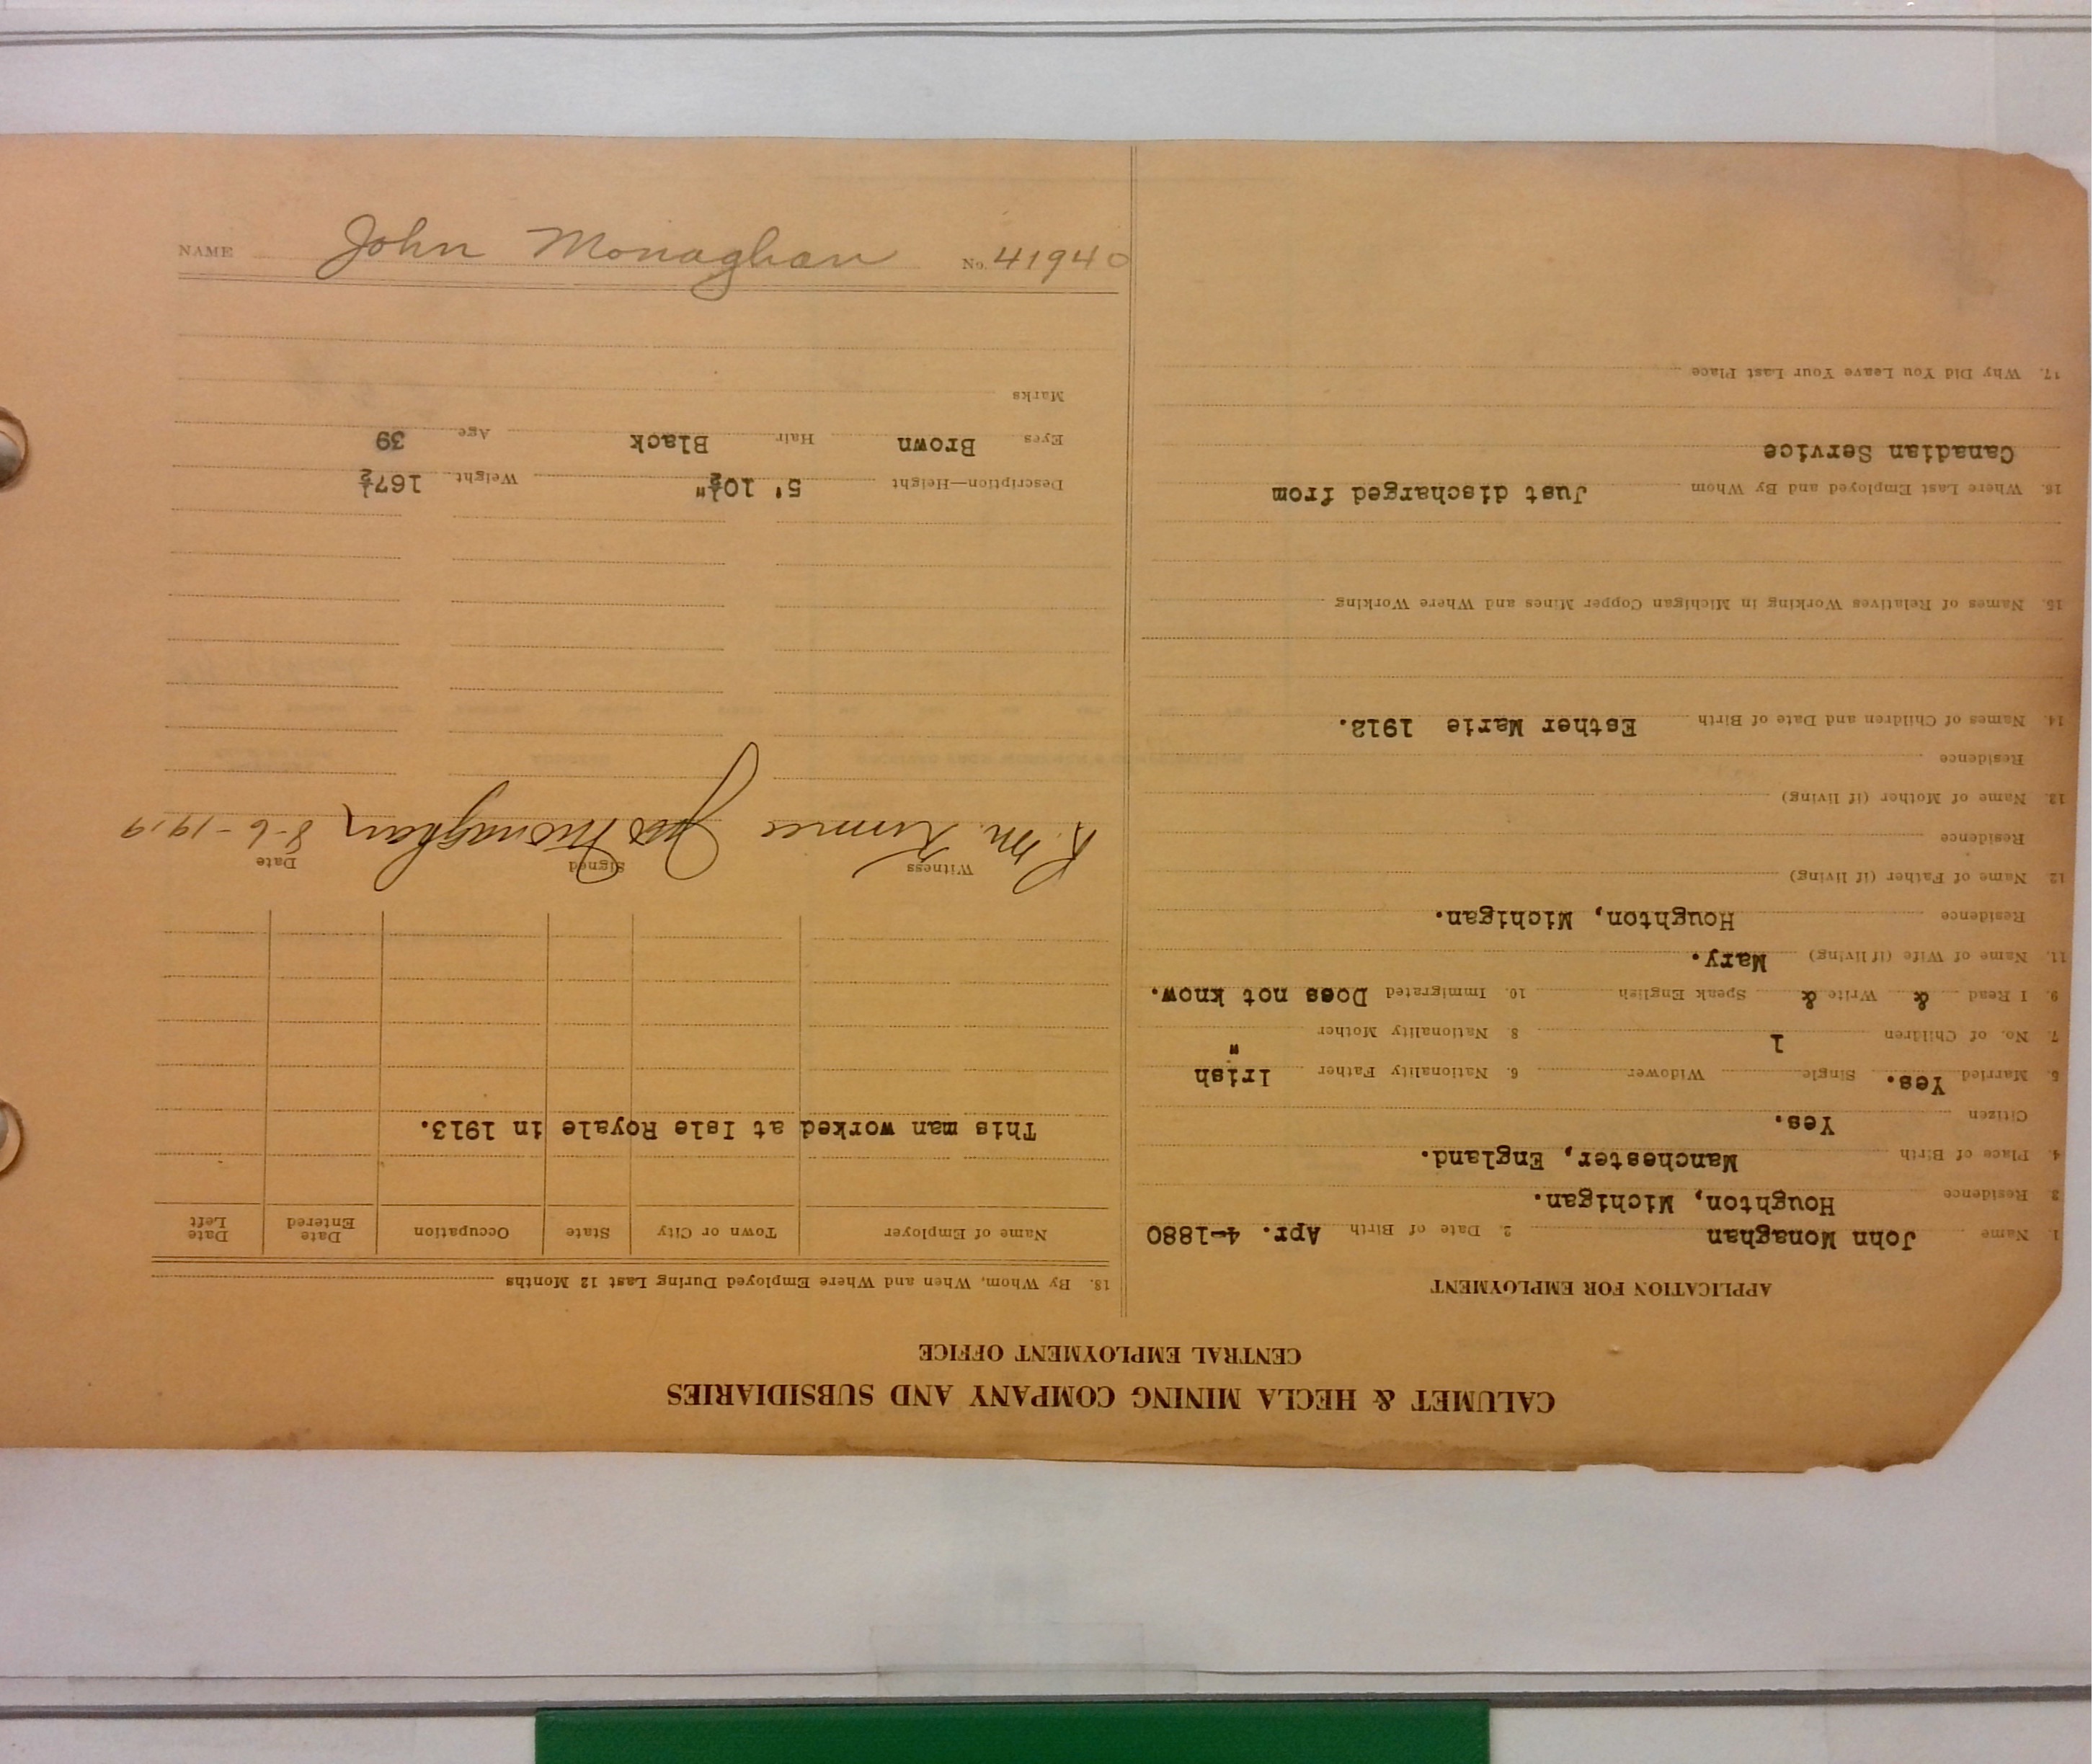 CALUMET & HECLA MINING COMPANY AND SUBSIDIARIES
CENTRAL EMPLOYMENT OFFICE
APPLICATION FOR EMPLOYMENT
1. Name John Monaghan 2. Date of Birth Apr. 4-1880
3. Residence Houghton, Michigan.
4. Place of Birth Manchester, England.
Citizen Yes.
5. Married Yes. Single Widower 6. Nationality Father Irish
7. No. of Children 1 8 Nationality Mother "
9. I Read & Write & Speak English 10. Immigrated Does not know.
11. Name of Wife (if living) Mary.
Residence Houghton, Michigan.
12. Name of Father (if living)
Residence
13. Name of Mother (if living)
Residence
14. Names of Children and Date of Birth Esther Marie 1912.
15. Names of Relatives Working in Michigan Copper Mines and Where Working
16. Where Last Employed and By Whom Just discharged from
Canadian Service
17. Why Did You Leave Your Last Place
18. By Whom, When and Where Employed During Last 12 Months
Name of Employer Town or City State Occupation Date Entered Date Left
This man worked at Isle Royale in 1913.
Witness Signed Date
R. M. Jno Monaghan 8-6-1919
Description—Height 5' 10½" Weight 167½
Eyes Brown Hair Black Age 39
Marks
NAME John Monaghan No. 41940